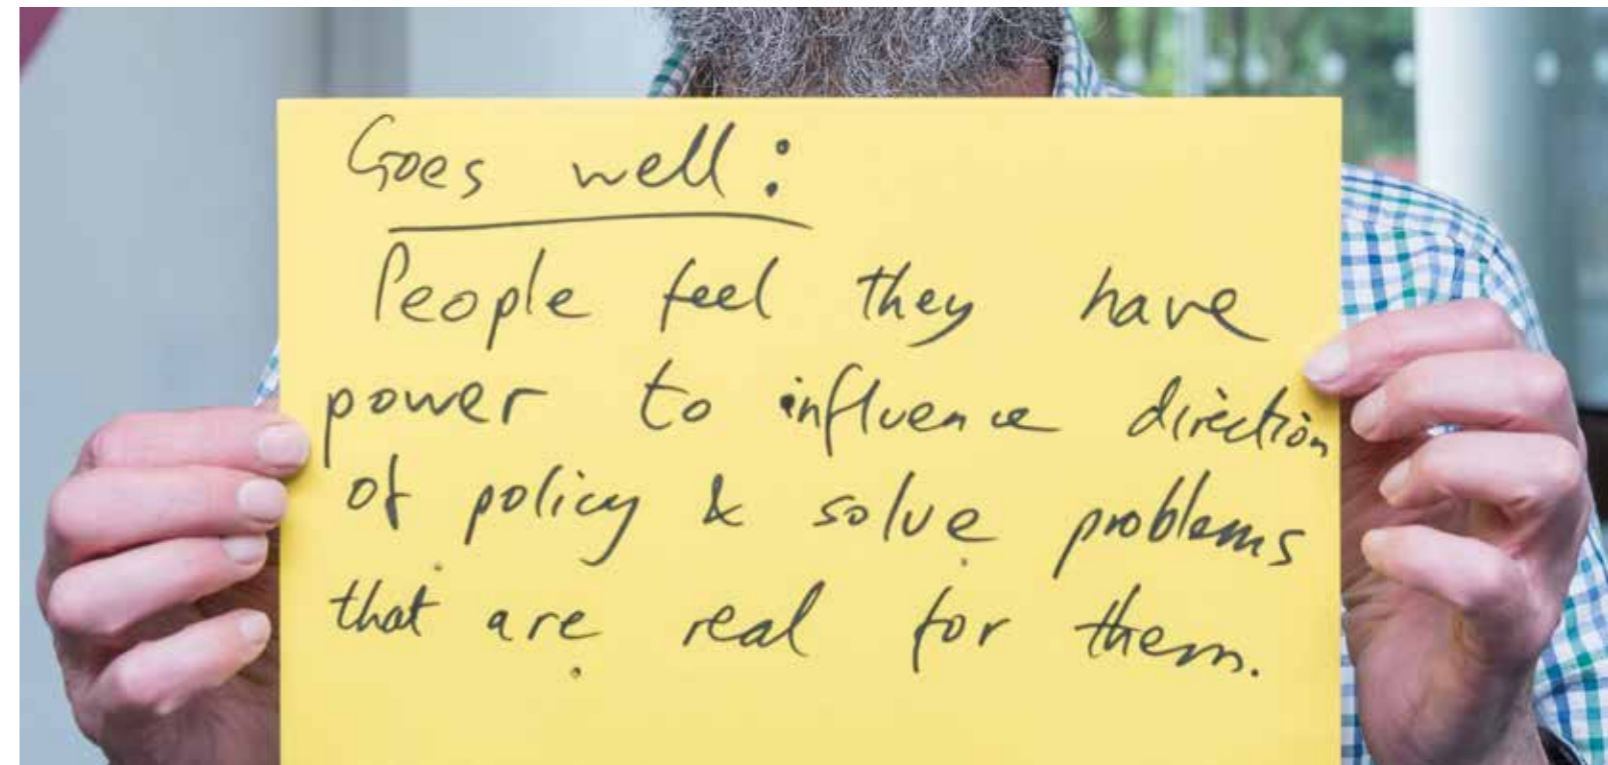 Goes well:
People feel they have
power to influence direction
of policy & solve problems
that are real for them.